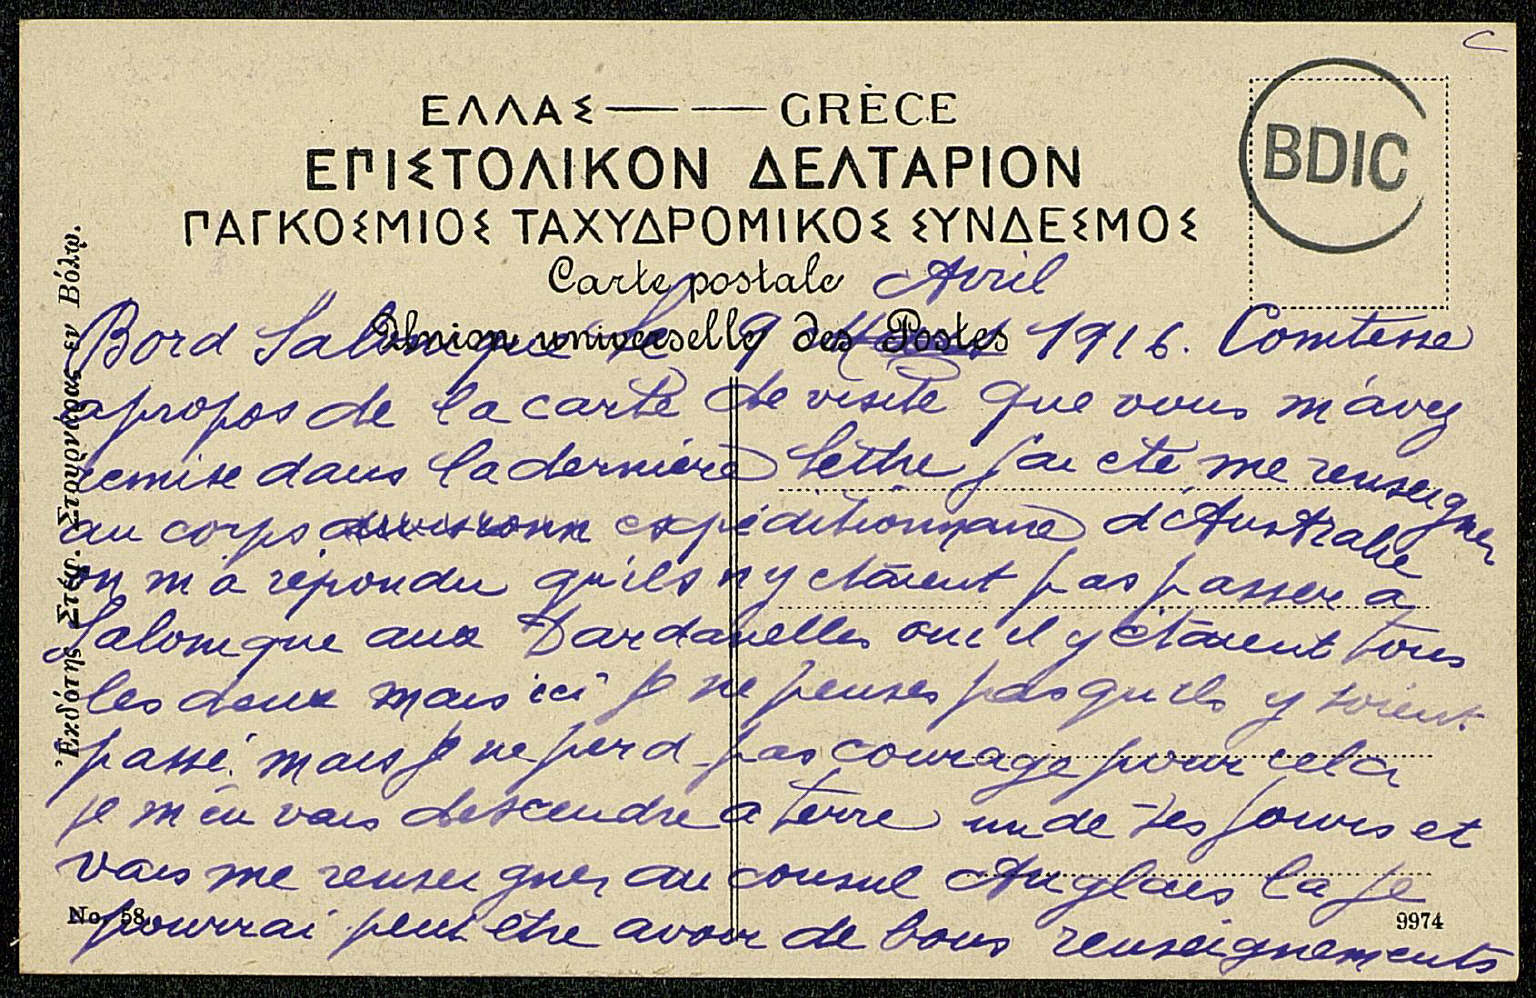 C
ΕΛΛΑΣ — — GRÈCE
ΕΠΙΣΤΟΛΙΚΟΝ ΔΕΛΤΑΡΙΟΝ
ΠΑΓΚΟΣΜΙΟΣ ΤΑΧΥΔΡΟΜΙΚΟΣ ΣΥΝΔΕΣΜΟΣ
Carte postale
Union universelle des Postes
BDIC
Avril
Bord Salonique le 9 1916. Comtesse
apropos de la carte de visite que vous m'avez
remise dans la dernière lettre j'ai eté me renseigner
au corps expéditionnaire d'Australie
on m'a répondu qu'ils n'y étaient pas passer a
Salonique aux Dardanelles oui il y étaient tous
les deux mais ici je ne penses pas qu'ils y soient
passé. mais je ne perd pas courage pour cela
je m'en vais descendre a terre un de ses jours et
vais me renseigner au consul Anglais la je
pourrai peut être avoir de bons renseignements
Ἐκδότης Στέφ. Στουρνάρας ἐν Βόλῳ.
No. 58.
9974